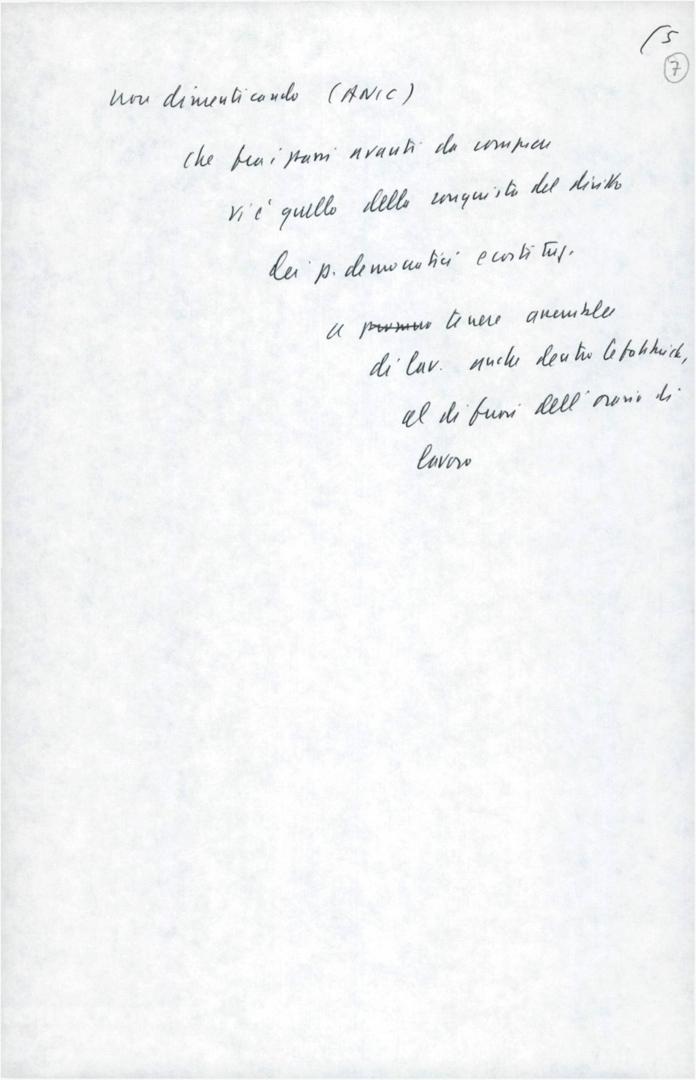 (5
7
non dimenticando (ANIC)
che fra i passi avanti da compiere
vi è quello della conquista del diritto
dei p. democratici e costituz.
a tenere assemblee
di lav. anche dentro le fabbriche,
al di fuori dell'orario di
lavoro